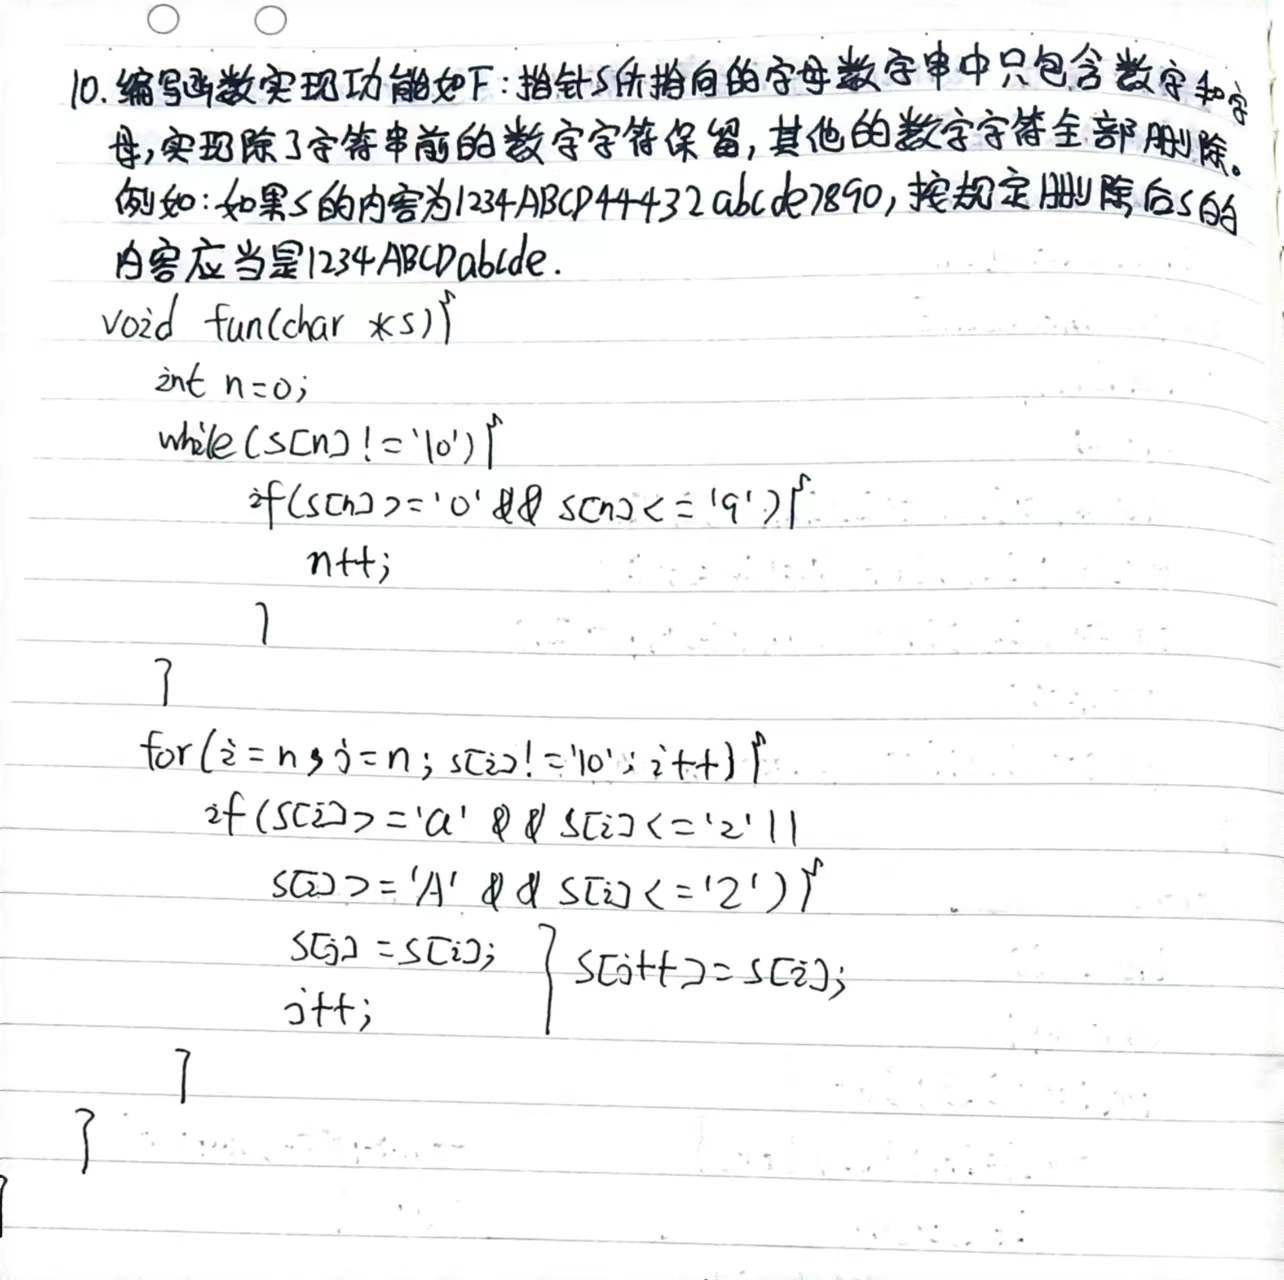 10.编写函数实现功能如下:指针S所指向的字母数字串中只包含数字和字
母,实现除了字符串前的数字字符保留,其他的数字字符全部删除。
例如:如果S的内容为1234ABCD44432abcde7890,按规定删除后S的
内容应当是1234ABCDabcde.
void fun(char *s){
int n=0;
while(s[n]!='\0'){
if(s[n]>='0'&&s[n]<='9'){
n++;
}
}
for(i=n,j=n;s[i]!='\0';i++){
if(s[i]>='a'&&s[i]<='z'||
s[i]>='A'&&s[i]<='Z'){
s[j]=s[i]; } s[j++]=s[i];
j++;
}
}
}